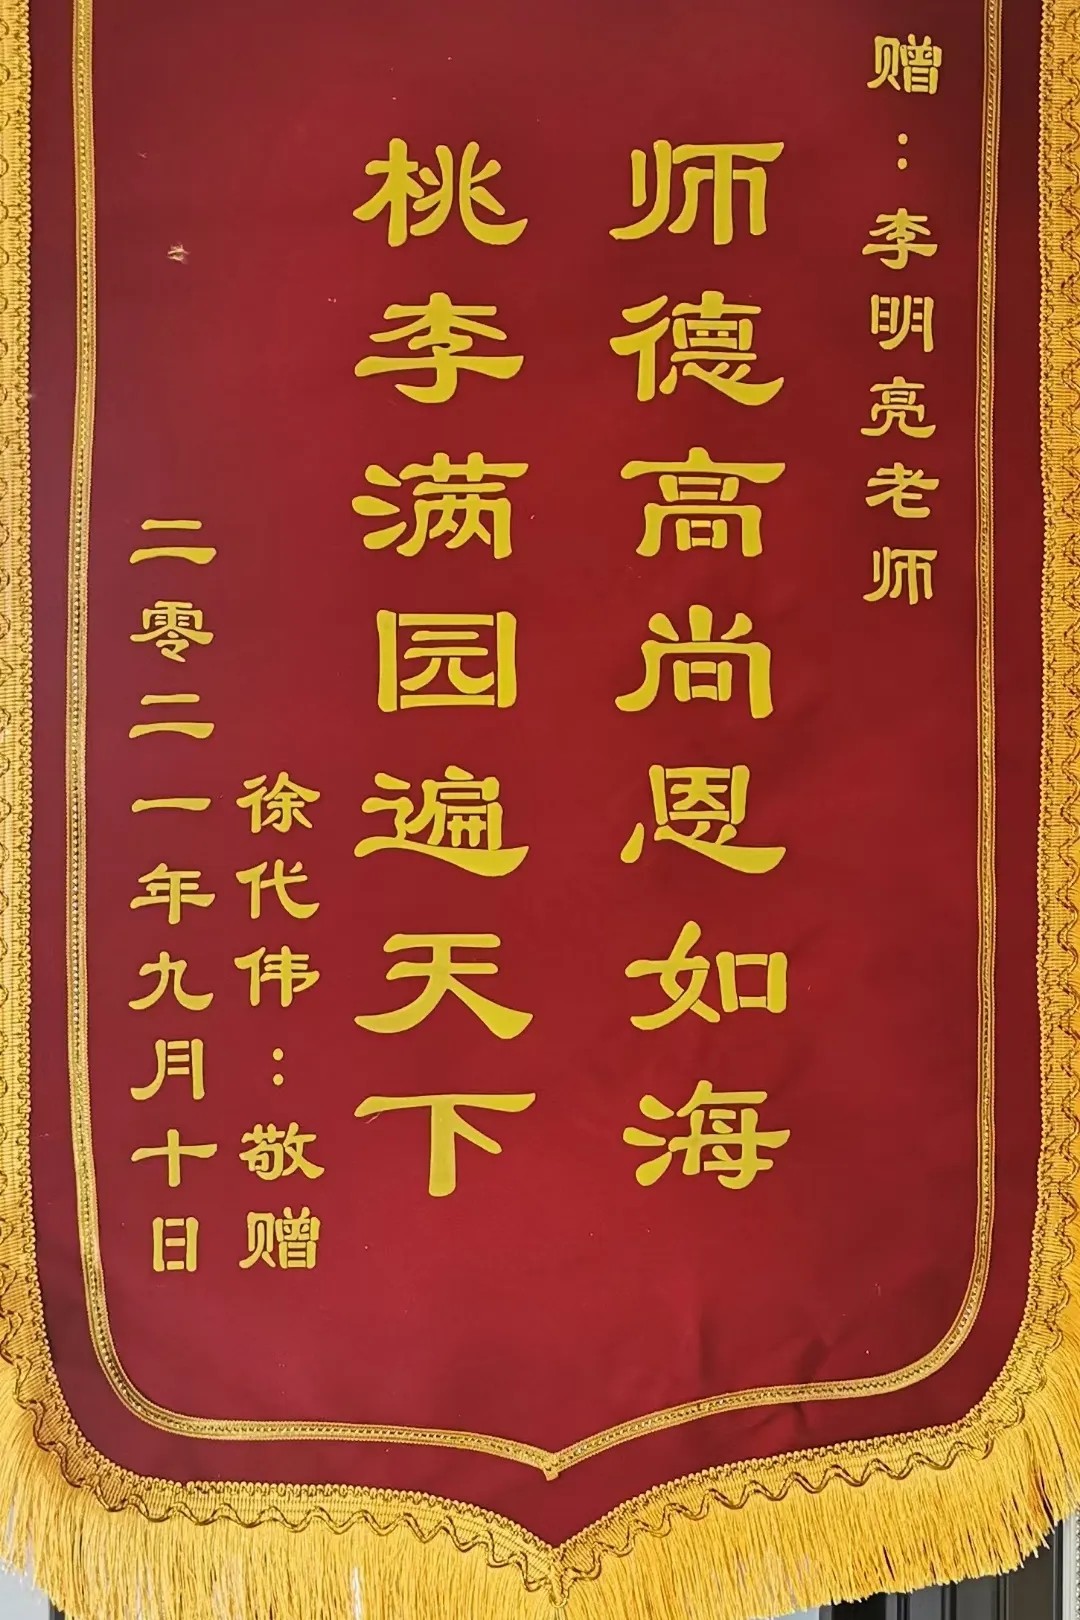 赠:李明亮老师
师德高尚恩如海
桃李满园遍天下
徐代伟:敬赠
二零二一年九月十日